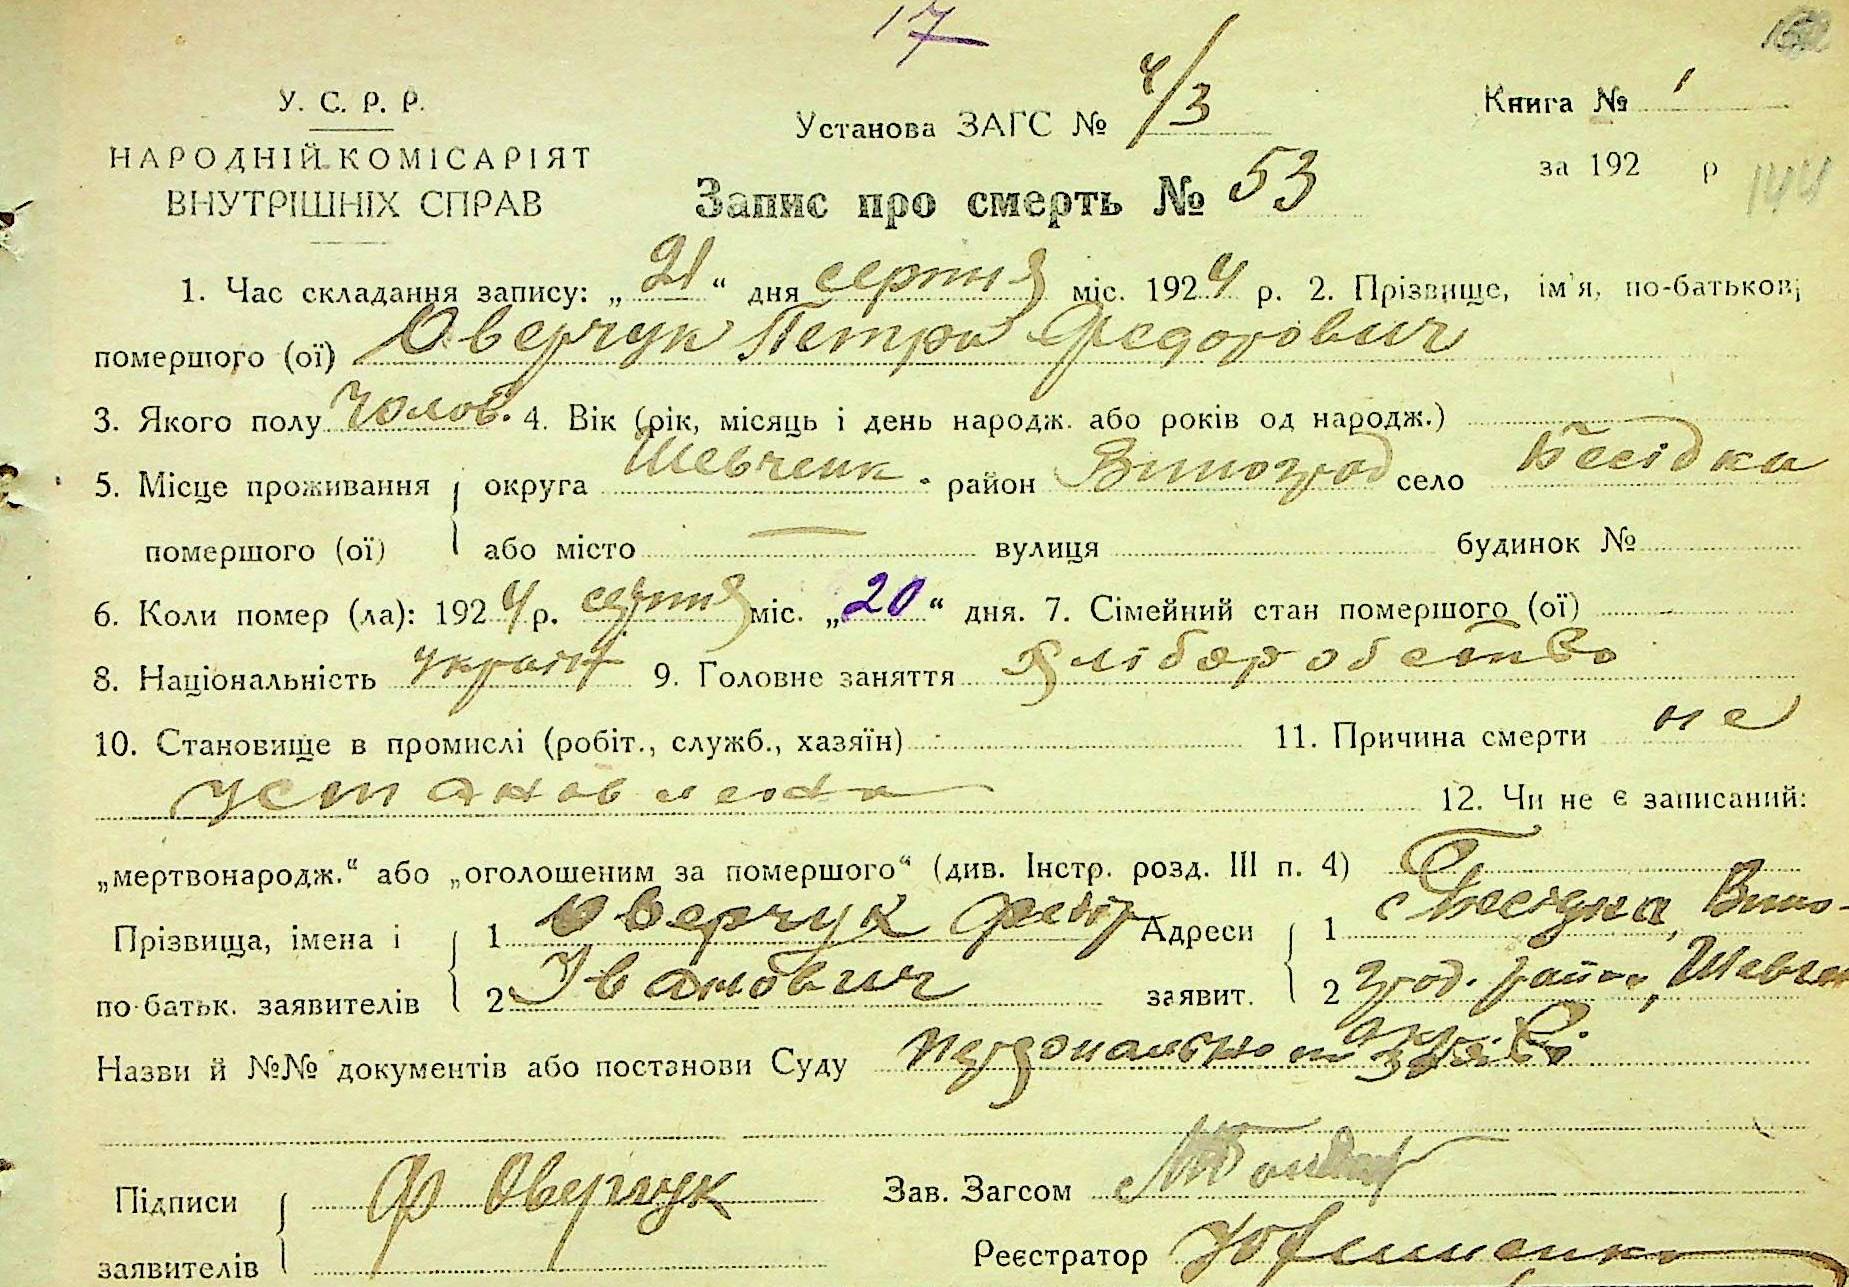 17
У. С. Р. Р.
НАРОДНІЙ КОМІСАРІЯТ
ВНУТРІШНІХ СПРАВ
Установа ЗАГС № 4/3
Книга № 1
за 192 р
144
Запис про смерть № 53
1. Час складання запису: „21“ дня серпня міс. 1924 р. 2. Прізвище, ім'я, по-батькові
помершого (ої) Оверчук Петро Федорович
3. Якого полу Чолов. 4. Вік (рік, місяць і день народж. або років од народж.)
5. Місце проживання округа Шевченк. район Виноград село Бесідка
помершого (ої) або місто — вулиця будинок №
6. Коли помер (ла): 1924 р. серпня міс. „20“ дня. 7. Сімейний стан помершого (ої)
8. Національність україн 9. Головне заняття хліборобство
10. Становище в промислі (робіт., служб., хазяїн) 11. Причина смерти не
установлена 12. Чи не є записаний:
„мертвонародж.“ або „оголошеним за помершого“ (див. Інстр. розд. III п. 4)
Прізвища, імена і 1 Оверчук Федір Адреси 1 с Бесідка, Вино-
по-батьк. заявителів 2 Іванович заявит. 2 град. район, Шевчен
Назви й №№ документів або постанови Суду персонально по заяві
Підписи Ф Оверчук Зав. Загсом
заявителів Реєстратор